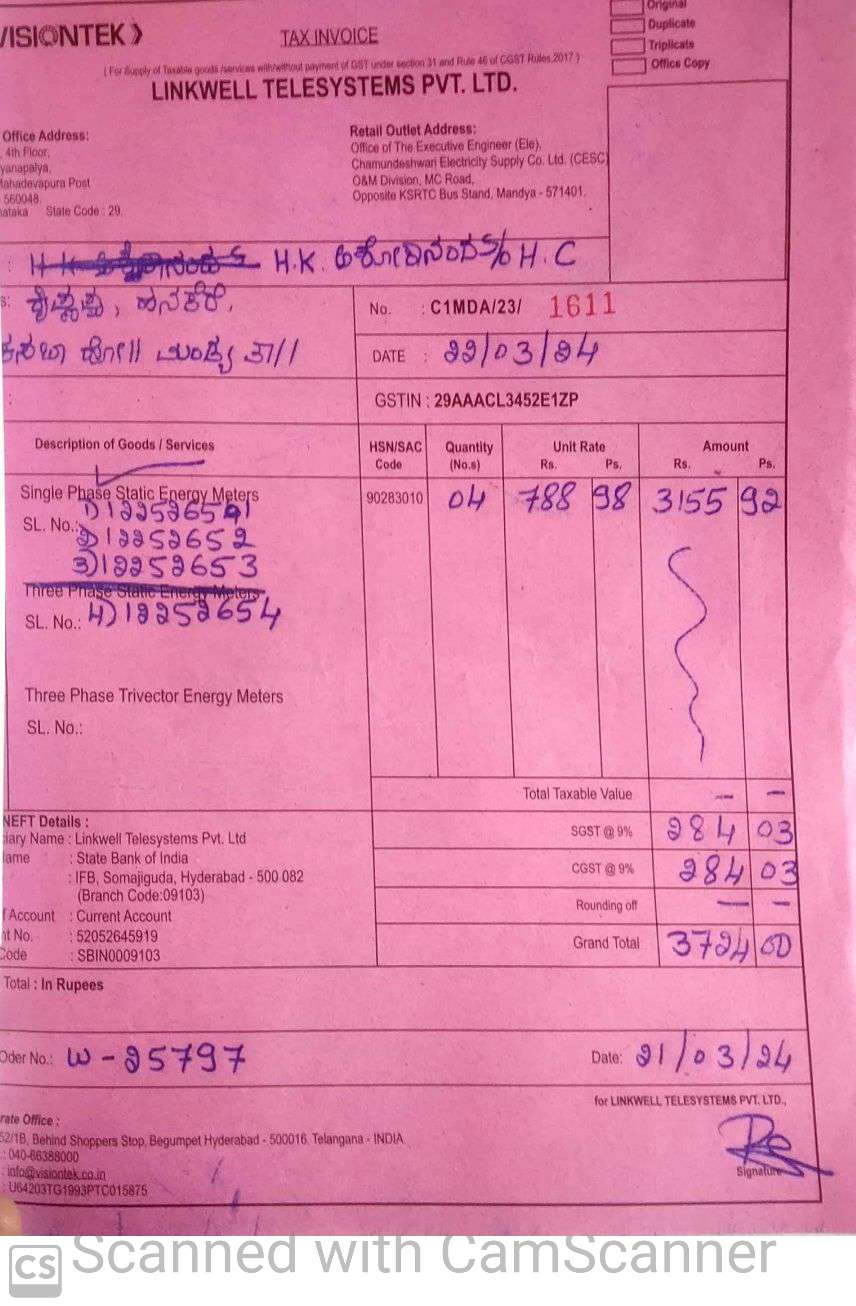 VISIONTEK
TAX INVOICE
Original
Duplicate
Triplicate
Office Copy
( For Supply of Taxable goods /services with/without payment of GST under section 31 and Rule 46 of CGST Rules,2017 )
LINKWELL TELESYSTEMS PVT. LTD.
Office Address:
, 4th Floor,
yanapalya,
ahadevapura Post
560048.
nataka State Code : 29.
Retail Outlet Address:
Office of The Executive Engineer (Ele),
Chamundeshwari Electricity Supply Co. Ltd. (CESC)
O&M Division, MC Road,
Opposite KSRTC Bus Stand, Mandya - 571401.
: H.K. S/o H.C
s:
ಮಂಡ್ಯ ತಾ//
No. : C1MDA/23/ 1611
DATE : 22/03/24
GSTIN : 29AAACL3452E1ZP
Description of Goods / Services HSN/SAC Code Quantity (No.s) Unit Rate Rs. Ps. Amount Rs. Ps.
Single Phase Static Energy Meters 90283010 04 788 98 3155 92
SL. No.:
2) 12252652
3) 12252653
Three Phase Static Energy Meters
SL. No.: 4) 12252654
Three Phase Trivector Energy Meters
SL. No.:
Total Taxable Value — –
SGST @ 9% 284 03
CGST @ 9% 284 03
Rounding off — –
Grand Total 3724 00
NEFT Details :
iary Name : Linkwell Telesystems Pvt. Ltd
ame : State Bank of India
: IFB, Somajiguda, Hyderabad - 500 082
(Branch Code:09103)
f Account : Current Account
nt No. : 52052645919
Code : SBIN0009103
Total : In Rupees
Oder No.: W - 25797
Date: 21/03/24
for LINKWELL TELESYSTEMS PVT. LTD.,
rate Office :
52/1B, Behind Shoppers Stop, Begumpet Hyderabad - 500016, Telangana - INDIA
.: 040-66388000
: info@visiontek.co.in
: U64203TG1993PTC015875
Signature
CS Scanned with CamScanner